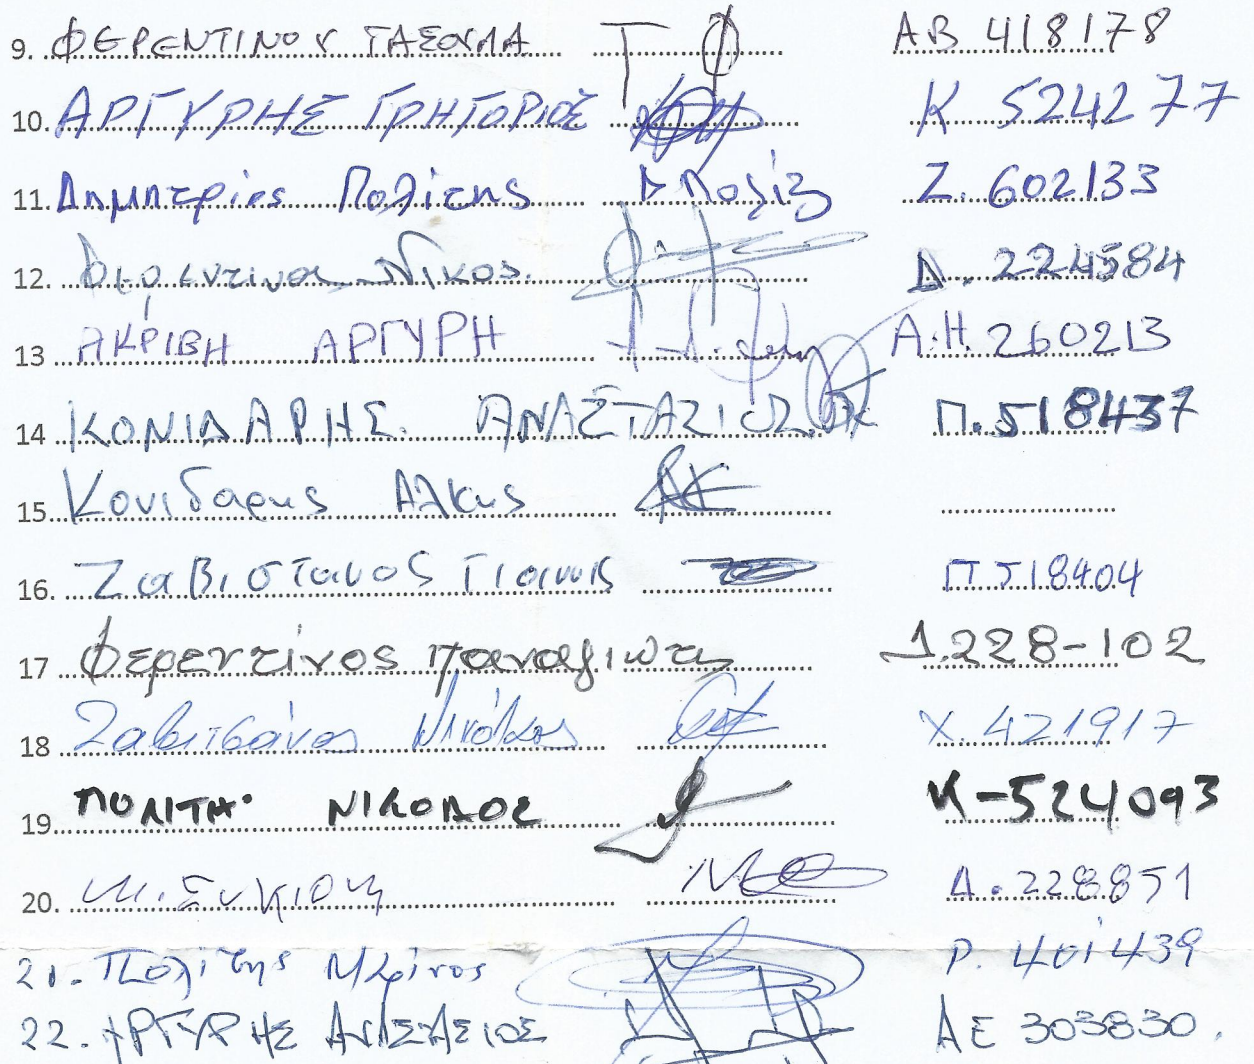 9. ΦΕΡΕΝΤΙΝΟΥ ΤΑΣΟΥΛΑ Τ Φ ΑΒ 418178
10. ΑΡΓΥΡΗΣ ΓΡΗΓΟΡΙΟΣ Κ 524277
11. Δημητριος Πολίτης Δ Πολίτης Ζ. 602133
12. Φερεντινος Νίκος. Δ. 224584
13 ΑΚΡΙΒΗ ΑΡΓΥΡΗ Α.Η. 260213
14 ΚΟΝΙΔΑΡΗΣ. ΑΝΑΣΤΑΣΙΟΣ. Π. 518437
15. Κονιδαρης Αλκης
16. Ζαβιστανος Γιαννης Π 518404
17 Φερεντίνος Παναγιωτης Δ 228-102
18 Χ. 421917
19 ΠΟΛΙΤΗ ΝΙΚΟΛΟΣ Κ-524093
20. Δ. 228851
21. Πολίτης Μαρίνος Ρ. 401439
22. ΑΡΓΥΡΗΣ ΑΝΑΣΤΑΣΙΟΣ ΑΕ 303830.